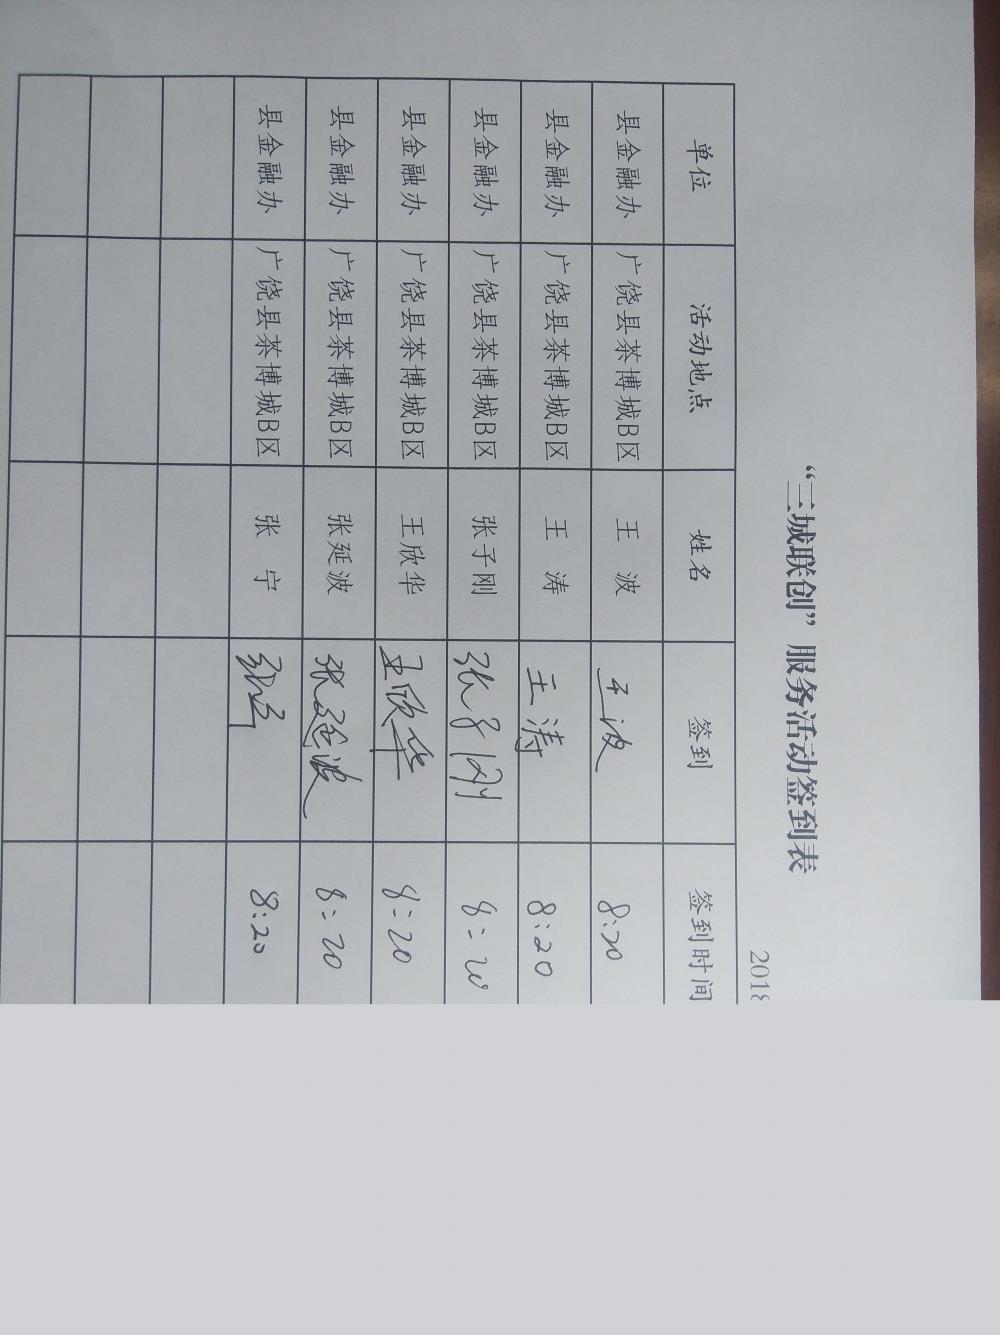 “三城联创”服务活动签到表
2018
单位 活动地点 姓名 签到 签到时间
县金融办 广饶县茶博城B区 王 波 王波 8:20
县金融办 广饶县茶博城B区 王 涛 王涛 8:20
县金融办 广饶县茶博城B区 张子刚 张子刚 8:20
县金融办 广饶县茶博城B区 王欣华 王欣华 8:20
县金融办 广饶县茶博城B区 张延波 张延波 8:20
县金融办 广饶县茶博城B区 张 宁 张宁 8:20